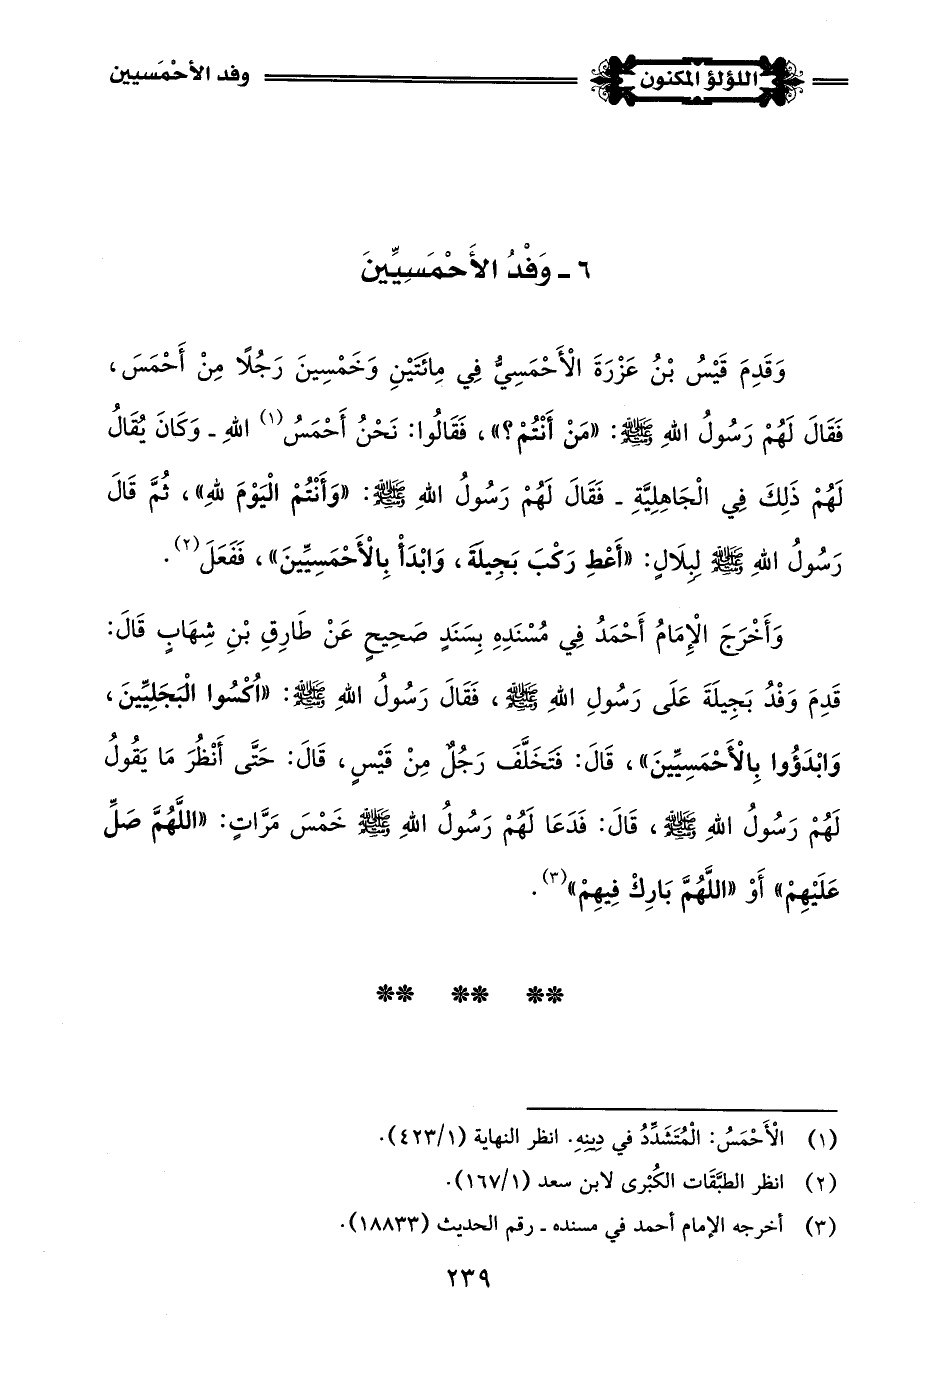 اللؤلؤ المكنون وفد الأحْمَسيين
٦ ـ وَفْدُ الأَحْمَسِيِّينَ
وَقَدِمَ قَيْسُ بْنُ عَزْرَةَ الْأَحْمَسِيُّ فِي مِائَتَيْنِ وَخَمْسِينَ رَجُلًا مِنْ أَحْمَسَ،
فَقَالَ لَهُمْ رَسُولُ اللهِ ﷺ: «مَنْ أَنْتُمْ؟»، فَقَالُوا: نَحْنُ أَحْمَسُ(١) اللهِ ـ وَكَانَ يُقَالُ
لَهُمْ ذَلِكَ فِي الْجَاهِلِيَّةِ ـ فَقَالَ لَهُمْ رَسُولُ اللهِ ﷺ: «وَأَنْتُمْ الْيَوْمَ للهِ»، ثُمَّ قَالَ
رَسُولُ اللهِ ﷺ لِبِلَالٍ: «أَعْطِ رَكْبَ بَجِيلَةَ، وَابْدَأْ بِالْأَحْمَسِيِّينَ»، فَفَعَلَ(٢).
وَأَخْرَجَ الْإِمَامُ أَحْمَدُ فِي مُسْنَدِهِ بِسَنَدٍ صَحِيحٍ عَنْ طَارِقِ بْنِ شِهَابٍ قَالَ:
قَدِمَ وَفْدُ بَجِيلَةَ عَلَى رَسُولِ اللهِ ﷺ، فَقَالَ رَسُولُ اللهِ ﷺ: «اُكْسُوا الْبَجَلِيِّينَ،
وَابْدَؤُوا بِالْأَحْمَسِيِّينَ»، قَالَ: فَتَخَلَّفَ رَجُلٌ مِنْ قَيْسٍ، قَالَ: حَتَّى أَنْظُرَ مَا يَقُولُ
لَهُمْ رَسُولُ اللهِ ﷺ، قَالَ: فَدَعَا لَهُمْ رَسُولُ اللهِ ﷺ خَمْسَ مَرَّاتٍ: «اللَّهُمَّ صَلِّ
عَلَيْهِمْ» أَوْ «اللَّهُمَّ بَارِكْ فِيهِمْ»(٣).
** ** **
(١) الْأَحْمَسُ: الْمُتَشَدِّدُ في دِينِهِ. انظر النهاية (٤٢٣/١).
(٢) انظر الطبَّقَات الكُبْرى لابن سعد (١٦٧/١).
(٣) أخرجه الإمام أحمد في مسنده ـ رقم الحديث (١٨٨٣٣).
٢٣٩